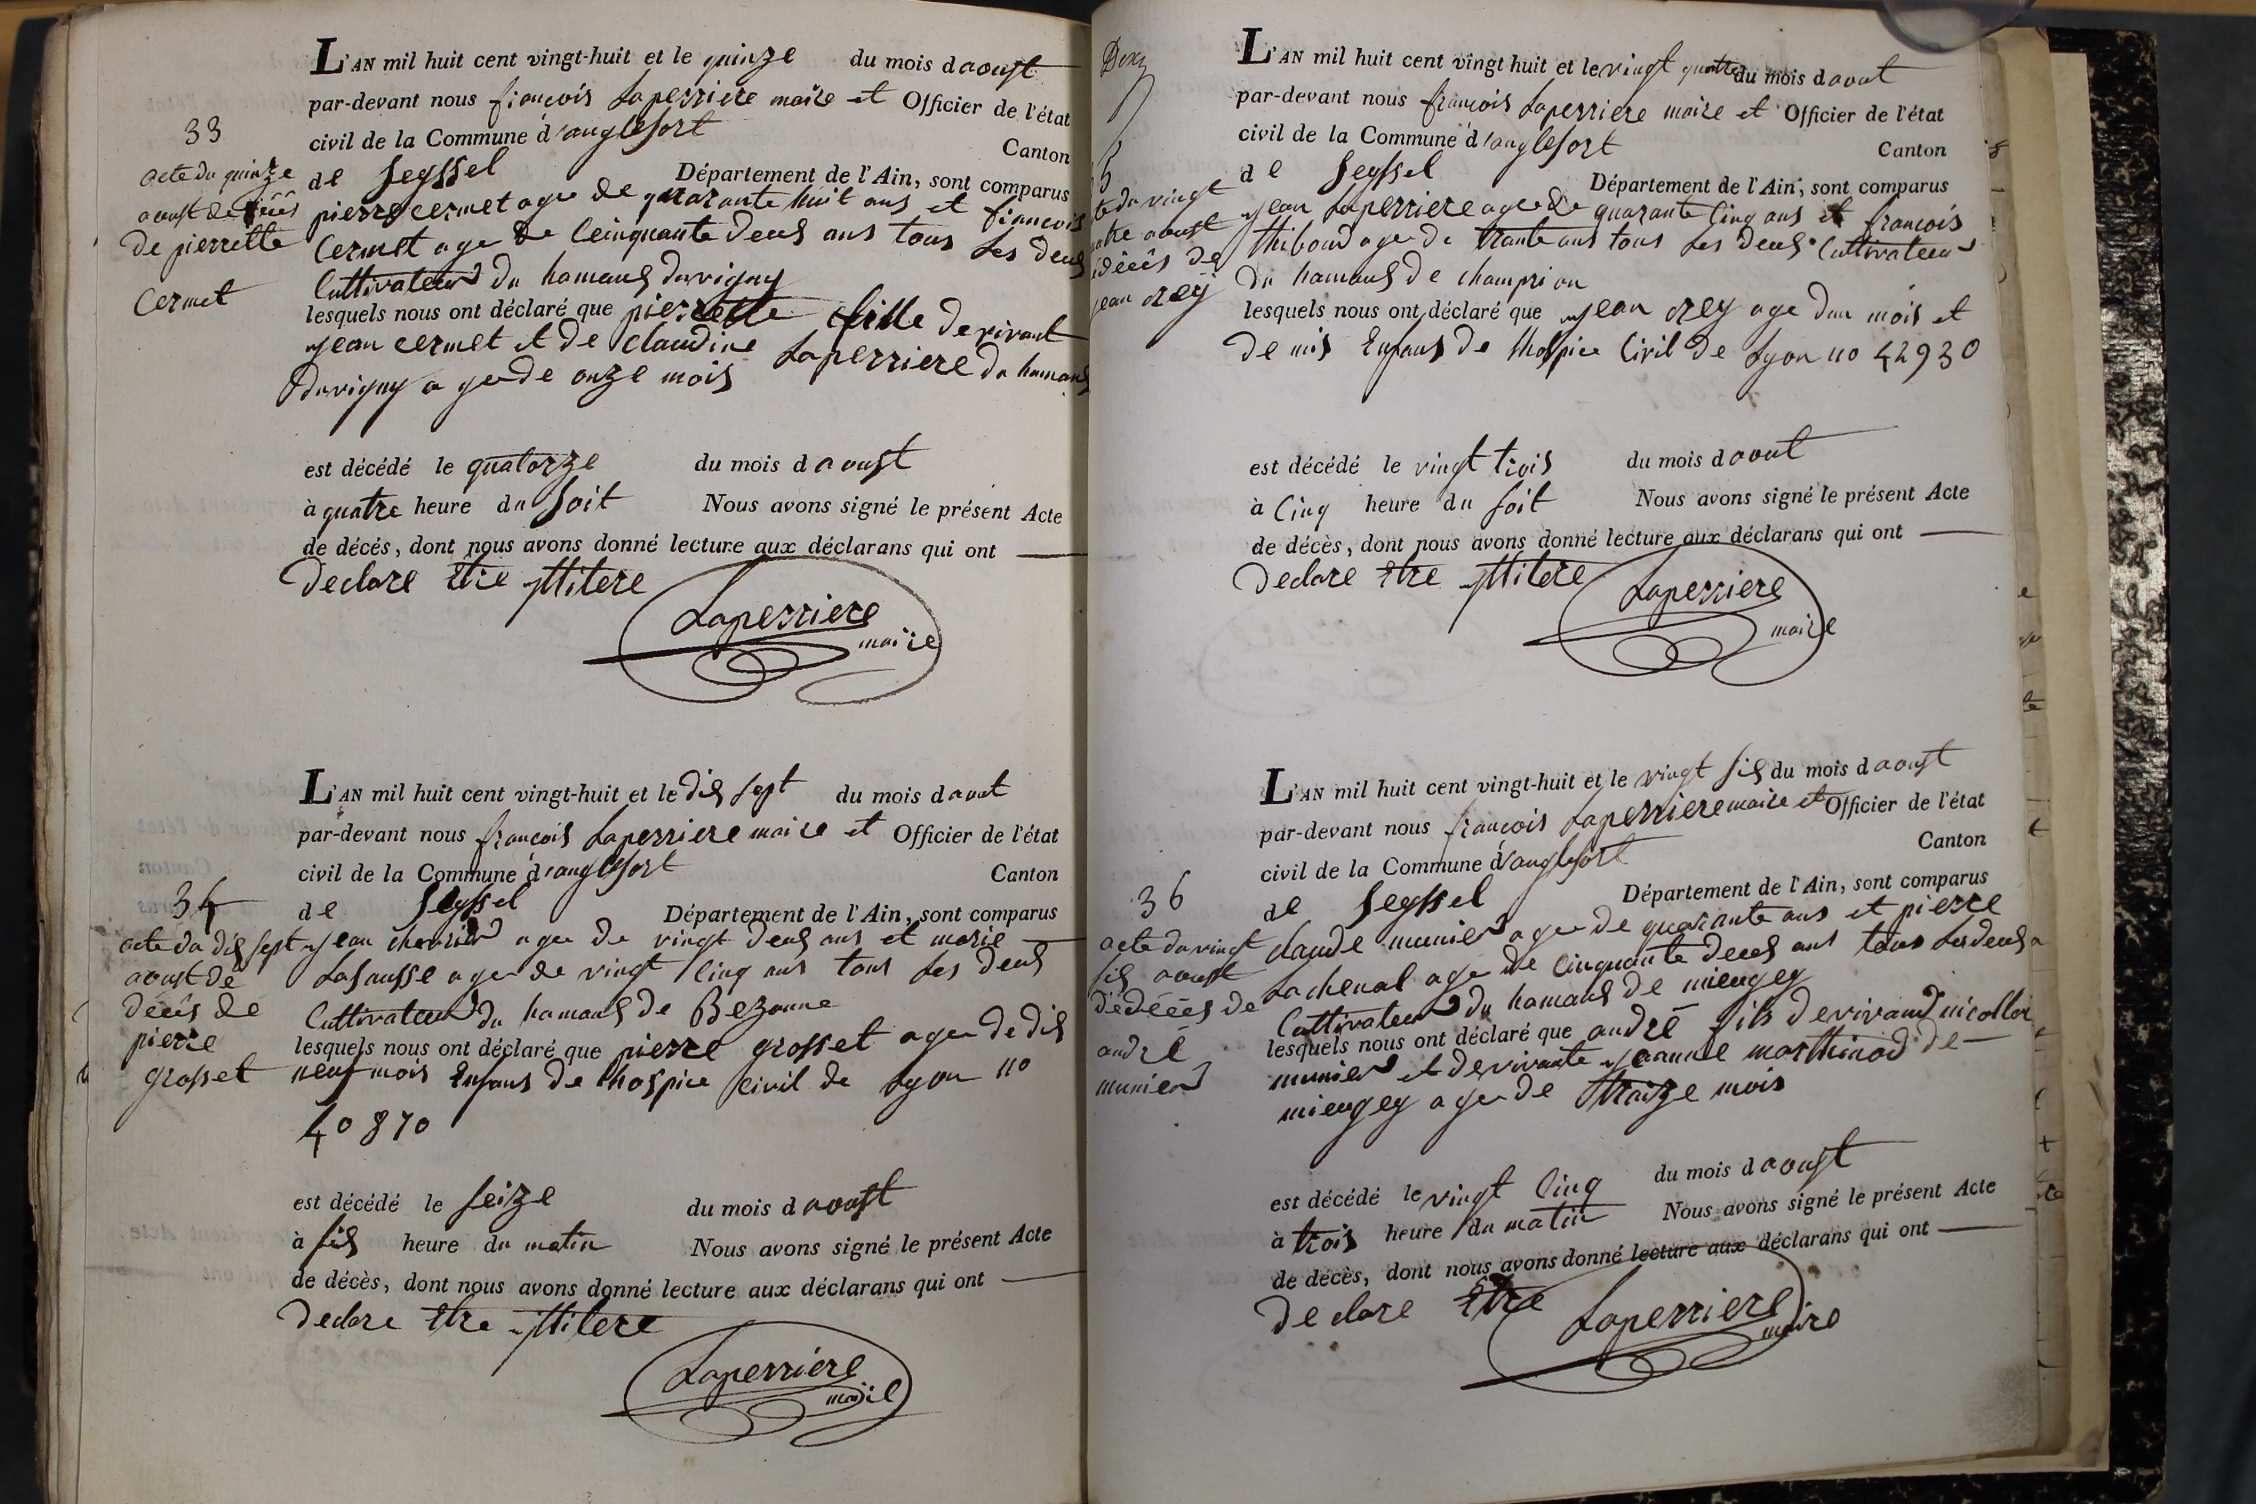 33
acte du quinze
aoust de décés
de pierrette
Cermet
L'AN mil huit cent vingt-huit et le quinze du mois daoust
par-devant nous françois Laperriere maire et Officier de l'état
civil de la Commune d'anglefort Canton
de Seyssel Département de l'Ain, sont comparus
pierre cermet agee de quarante huit ans et françois
Cermet agee de Ceinquante deus ans tous Les deus
Cultivateur du hamaus duvigny
lesquels nous ont déclaré que pierrette fille de vivant
jean cermet et de claudine Laperriere du hamaus
duvigny agee de onze mois
est décédé le quatorze du mois d aoust
à quatre heure du Soit Nous avons signé le présent Acte
de décés, dont nous avons donné lecture aux déclarans qui ont
declare Etre jllitere
Laperriere
maire
34
acte du dis sept
aoust de
décés de
pierre
grosset
L'AN mil huit cent vingt-huit et le dis sept du mois daout
par-devant nous françois Laperriere maire et Officier de l'état
civil de la Commune d'anglefort Canton
de Seyssel Département de l'Ain, sont comparus
jean chevrier agee de vingt deus ans et marie
Lasausse agee de vingt Cinq ans tous Les deus
Cultivateur du hamaus de Bezonne
lesquels nous ont déclaré que pierre grosset agee de dis
neuf mois Enfans de lhospice Civil de Lyon no
40870
est décédé le Seize du mois d aoust
à Sis heure du matin Nous avons signé le présent Acte
de décès, dont nous avons donné lecture aux déclarans qui ont
declare Etre jllitere
Laperriere
maire
du vingt
aoust
décés de
jean orey
L'AN mil huit cent vingt huit et le vingt quatre du mois daout
par-devant nous françois Laperriere maire et Officier de l'état
civil de la Commune d'anglefort Canton
de Seyssel Département de l'Ain, sont comparus
jean Laperriere agee de quarante Cinq ans et françois
thiboud agee de trante ans tous Les deus Cultivateur
du hamaus de champrion
lesquels nous ont déclaré que jean orey age dun mois et
demis Enfans de lhospice Civil de Lyon no 42930
est décédé le vingt trois du mois d aout
à Cinq heure du Soit Nous avons signé le présent Acte
de décès, dont nous avons donné lecture aux déclarans qui ont
declare Etre jllitere
Laperriere
maire
36
acte du vingt
sis aoust
dédéces de
andré
munier
L'AN mil huit cent vingt-huit et le vingt sis du mois daoust
par-devant nous françois Laperriere maire et Officier de l'état
civil de la Commune d'anglefort Canton
de Seyssel Département de l'Ain, sont comparus
claude munier agee de quarante ans et pierre
Lachenal agee de Cinquante deus ans tous Les deus
Cultivateur du hamaus de mieugey
lesquels nous ont déclaré que andré fils de vivand
munier et de vivante jeanne marthinod de
mieugey agee de traize mois
est décédé le vingt Cinq du mois d aoust
à trois heure du matin Nous avons signé le présent Acte
de décès, dont nous avons donné lecture aux déclarans qui ont
declare Etre
Laperriere
maire